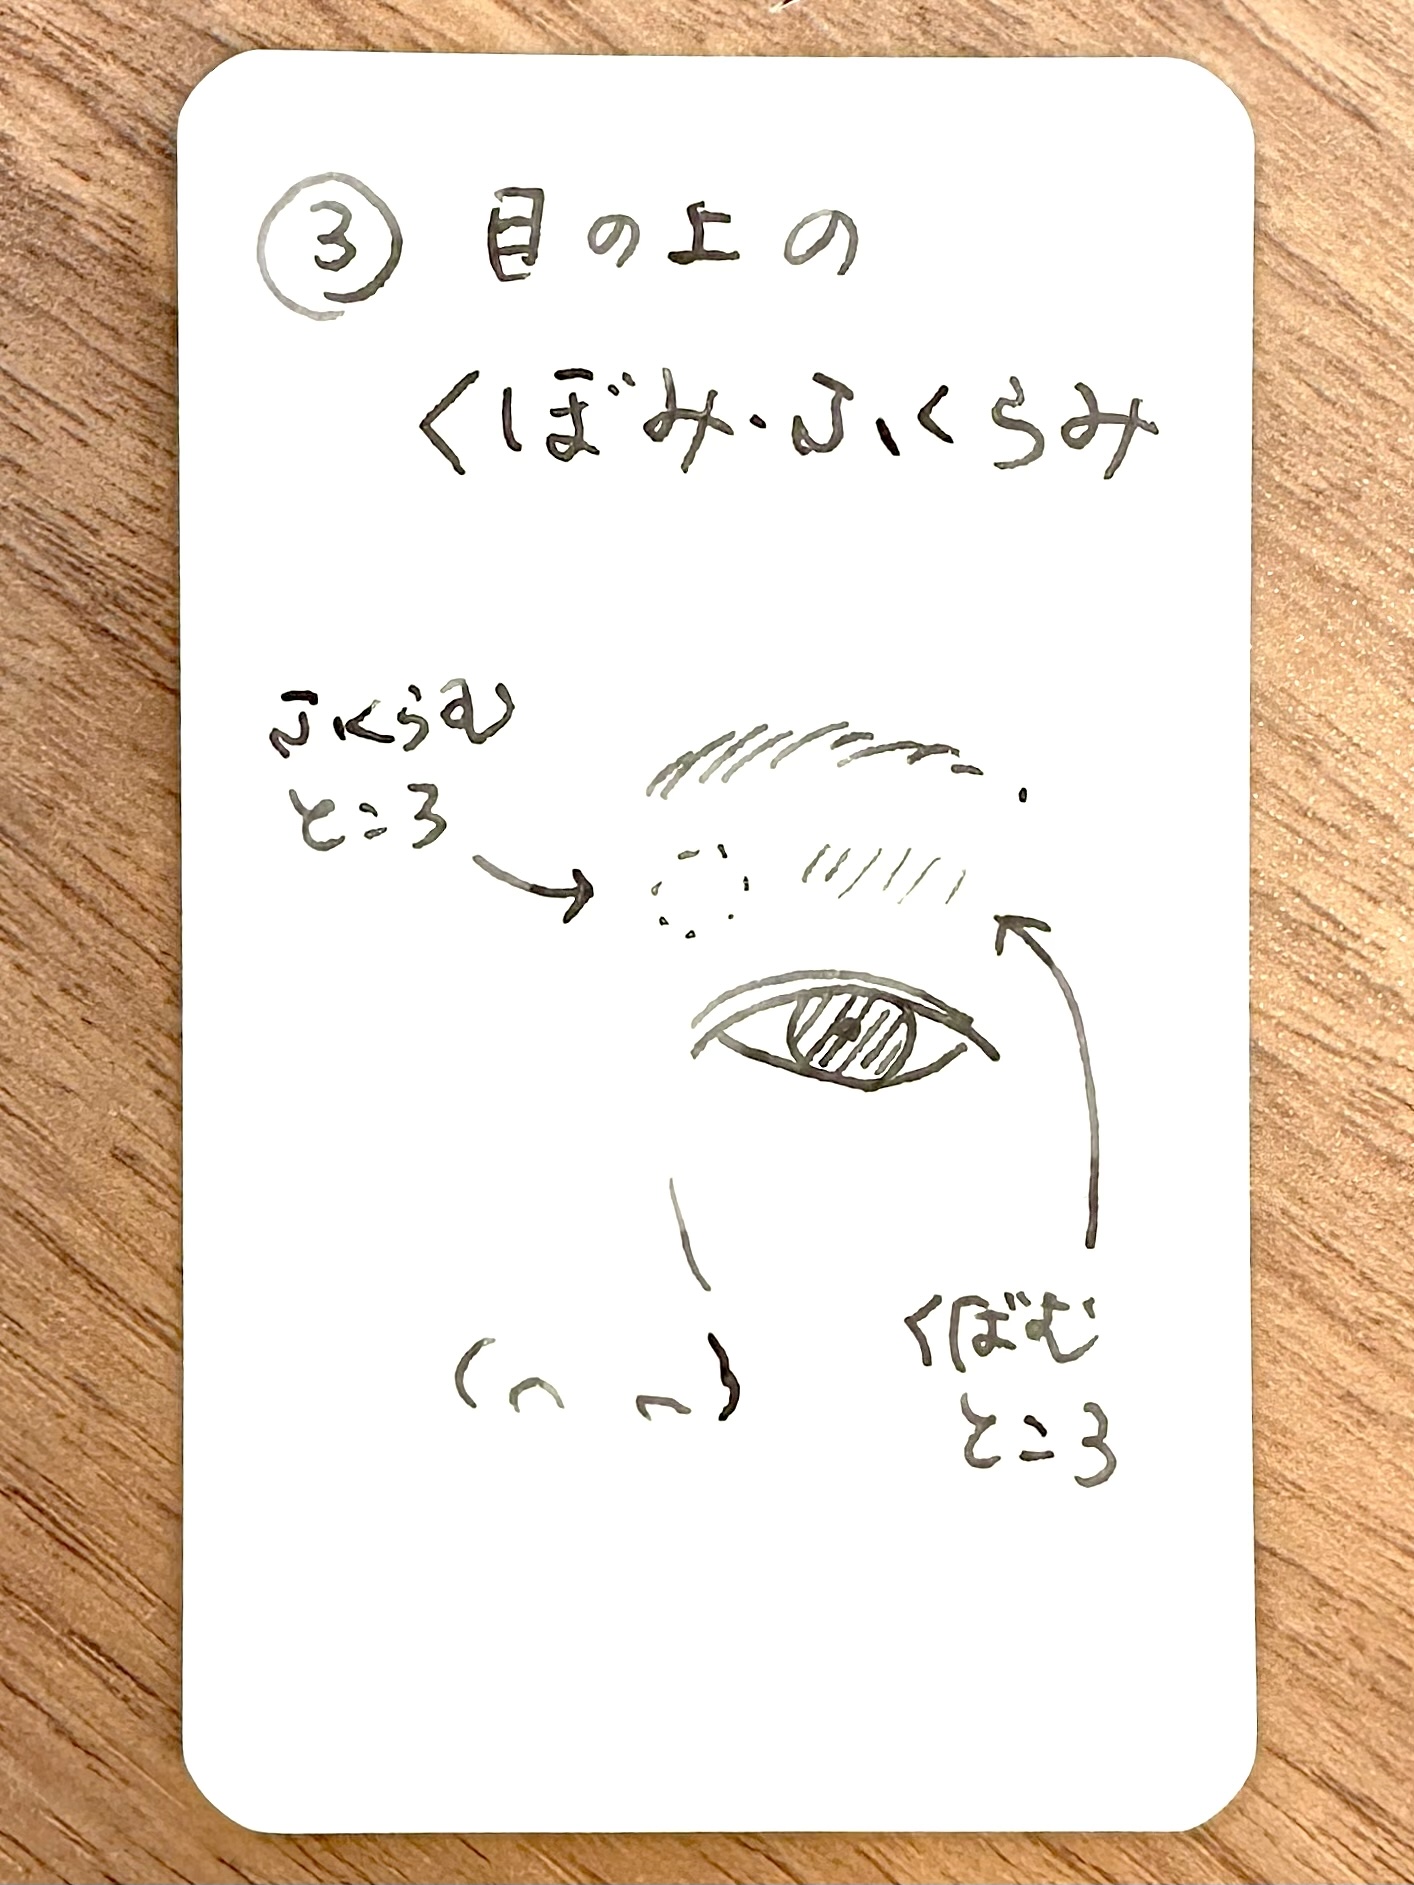 ③ 目の上の
くぼみ・ふくらみ
ふくらむ
ところ
くぼむ
ところ